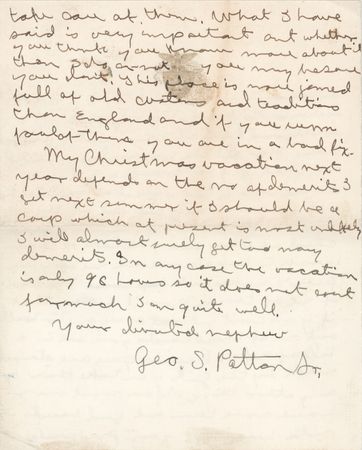 take care of them. What I have
said is very important and whether
you think you know more about it
than I do or not you may be sure
you don't. This place is more
full of old customs and traditions
than England and if you run
foul of them you are in a bad fix.
My Christmas vacation next
year depends on the no of demerits I
get next summer if I should be a
corp which at present is most unlikely
I will almost surely get too many
demerits. In any case the vacation
is only 96 hours so it does not count
for much I am quite well.
Your devoted nephew
Geo. S. Patton Jr.